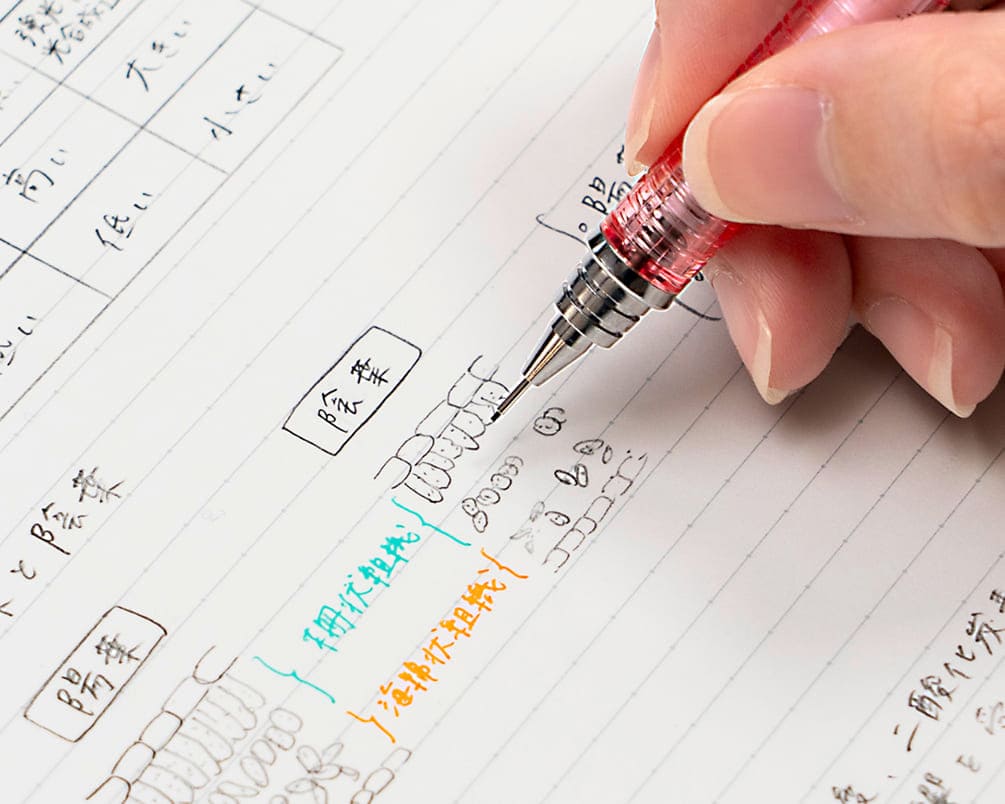 強光
光合成
大きい
小さい
高い
低い
陽
陰葉
と陰葉
柵状組織
海綿状組織
陽葉
二酸化炭